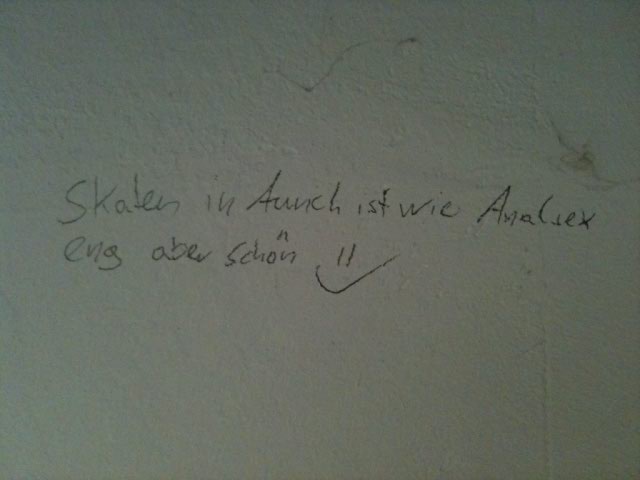 Skaten in Aurich ist wie Analsex
eng aber schön !!